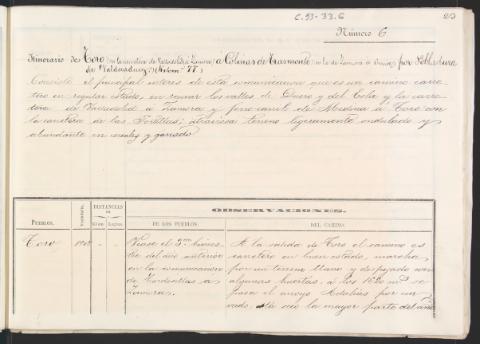 C.93-33.6
Número 6
Itinerario de Toro en la carretera de Valladolid á Zamora á Colinas de Trasmonte en la de Zamora á por Pobladura
de Valderaduey (Kilom.s 77)
Consiste el principal interes de esta comunicacion que es un camino carre-
tero en regular estado, en reunir los valles de Duero y del Esla y la carre-
tera de Valladolid á Zamora y ferro carril de Medina á Toro con
la carretera de las Portillas; atraviesa terreno ligeramente ondulado y
abundante en cereales y ganado.
PUEBLOS.
DISTANCIAS
EN
OBSERVACIONES.
DE LOS PUEBLOS.
DEL CAMINO.
Toro
Vease el 3.er itinera-
rio del año anterior
en la comunicacion
de Tordesillas a
Zamora.
A la salida de Toro el camino es
carretero en buen estado, marcha
por un terreno llano y despejado con
algunas huertas: a los 1620 m.s se
pasa el arroyo Adalias por un
vado, está seco la mayor parte del año